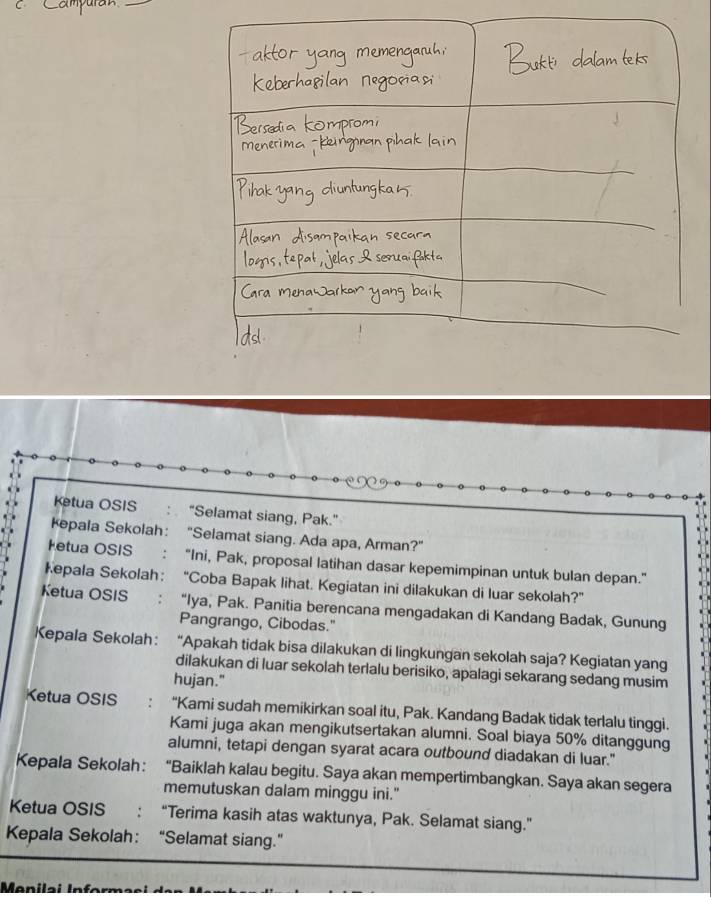 C. Campuran.
Faktor yang memengaruhi
Keberhasilan negosiasi
Bukti dalam teks
Bersedia kompromi
menerima keinginan pihak lain
Pihak yang diuntungkan.
Alasan disampaikan secara
logis, tepat, jelas & sesuai fakta
Cara menawarkan yang baik
dsl.
Ketua OSIS : "Selamat siang, Pak."
Kepala Sekolah: "Selamat siang. Ada apa, Arman?"
Ketua OSIS : "Ini, Pak, proposal latihan dasar kepemimpinan untuk bulan depan."
Kepala Sekolah: "Coba Bapak lihat. Kegiatan ini dilakukan di luar sekolah?"
Ketua OSIS : "Iya, Pak. Panitia berencana mengadakan di Kandang Badak, Gunung
Pangrango, Cibodas."
Kepala Sekolah: "Apakah tidak bisa dilakukan di lingkungan sekolah saja? Kegiatan yang
dilakukan di luar sekolah terlalu berisiko, apalagi sekarang sedang musim
hujan."
Ketua OSIS : "Kami sudah memikirkan soal itu, Pak. Kandang Badak tidak terlalu tinggi.
Kami juga akan mengikutsertakan alumni. Soal biaya 50% ditanggung
alumni, tetapi dengan syarat acara outbound diadakan di luar."
Kepala Sekolah: "Baiklah kalau begitu. Saya akan mempertimbangkan. Saya akan segera
memutuskan dalam minggu ini."
Ketua OSIS : "Terima kasih atas waktunya, Pak. Selamat siang."
Kepala Sekolah: "Selamat siang."
Menilai Informasi dan